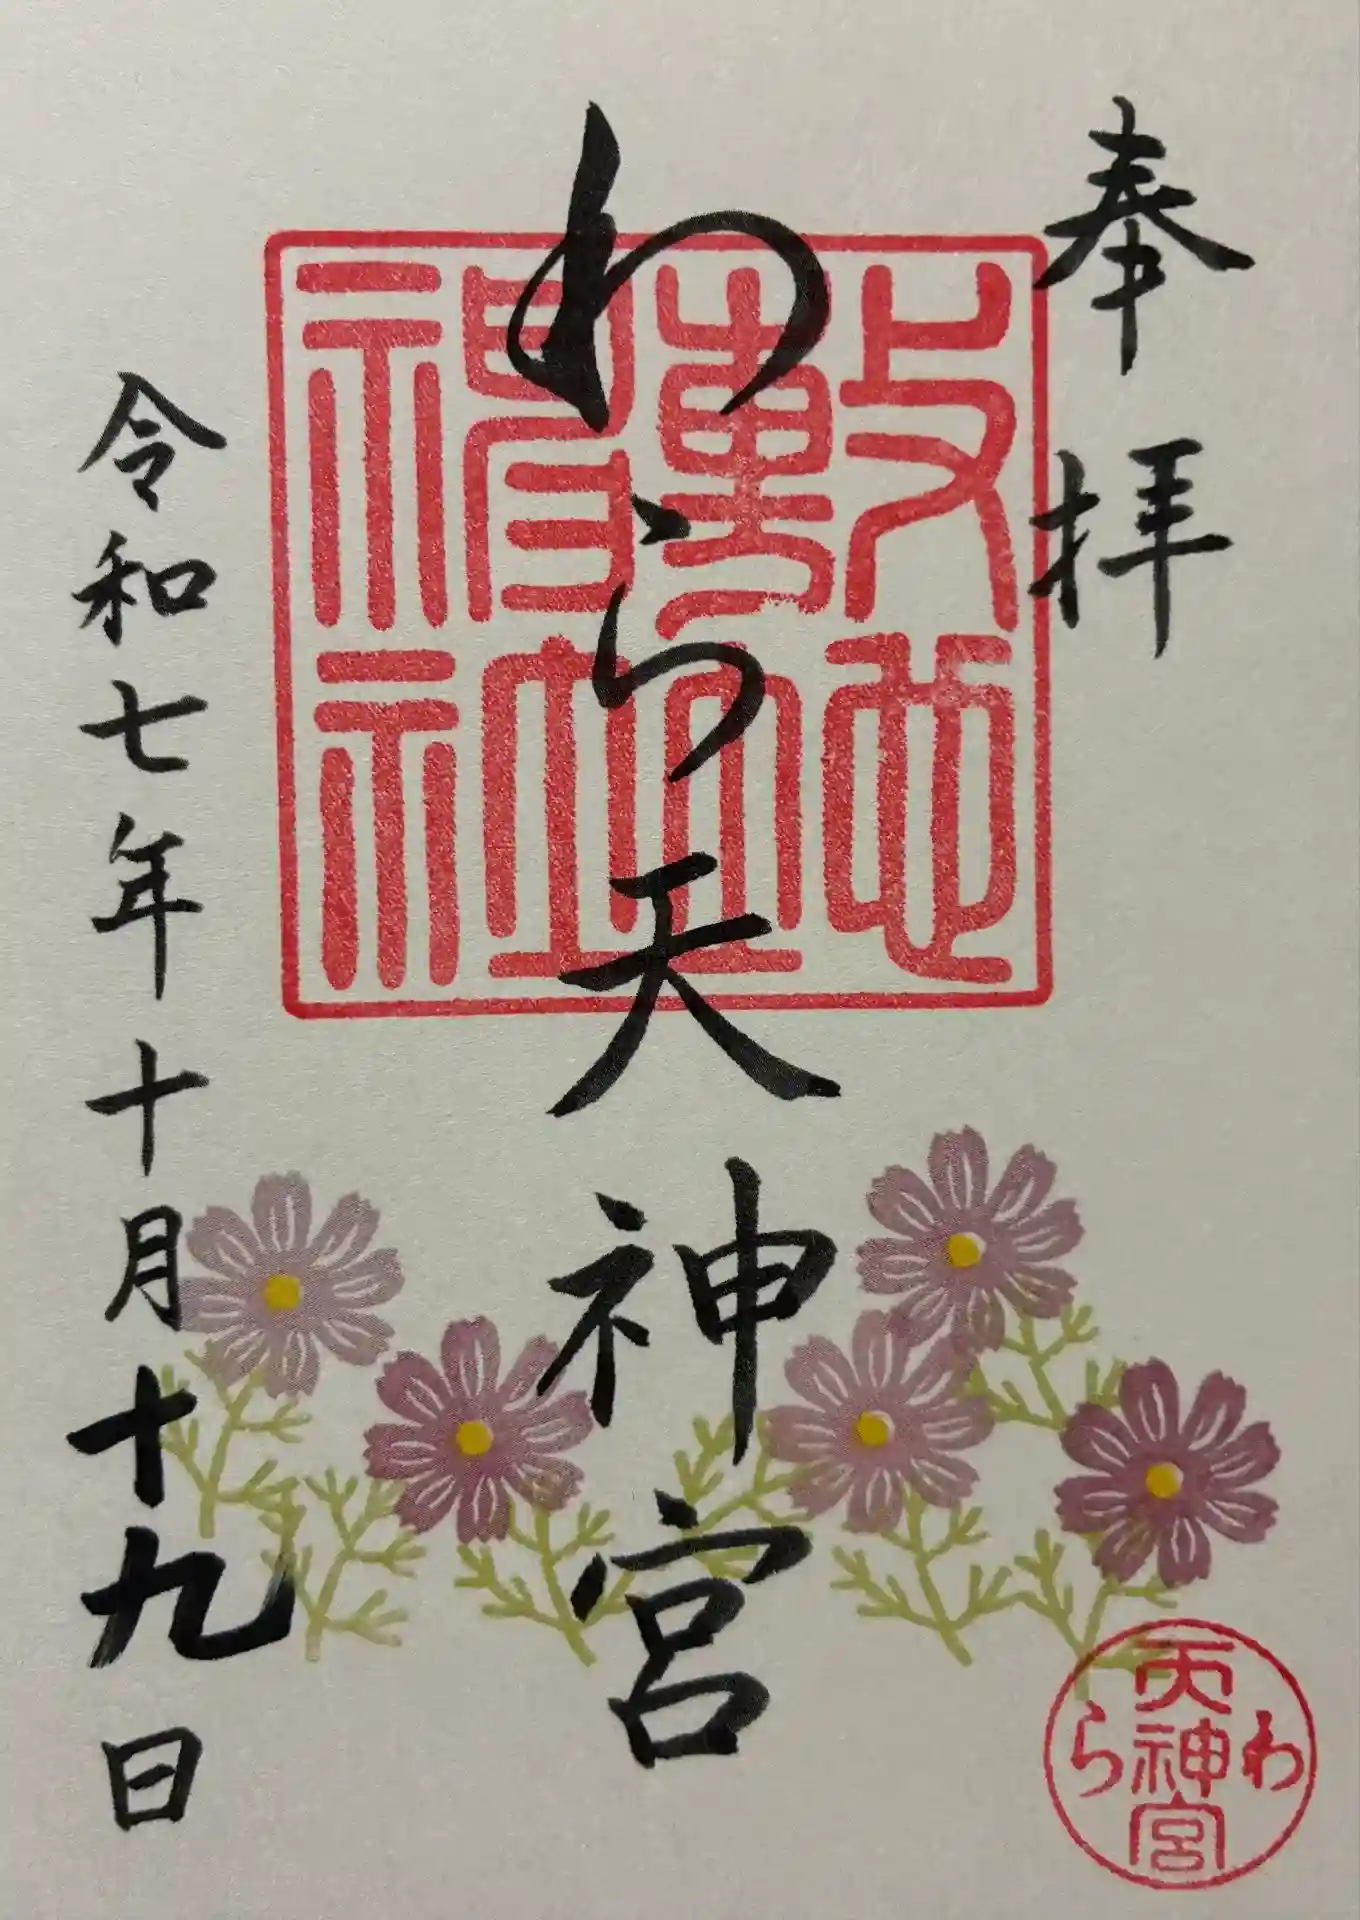 奉拝
敷地神社
わら天神宮
令和七年十月十九日
わら天神宮